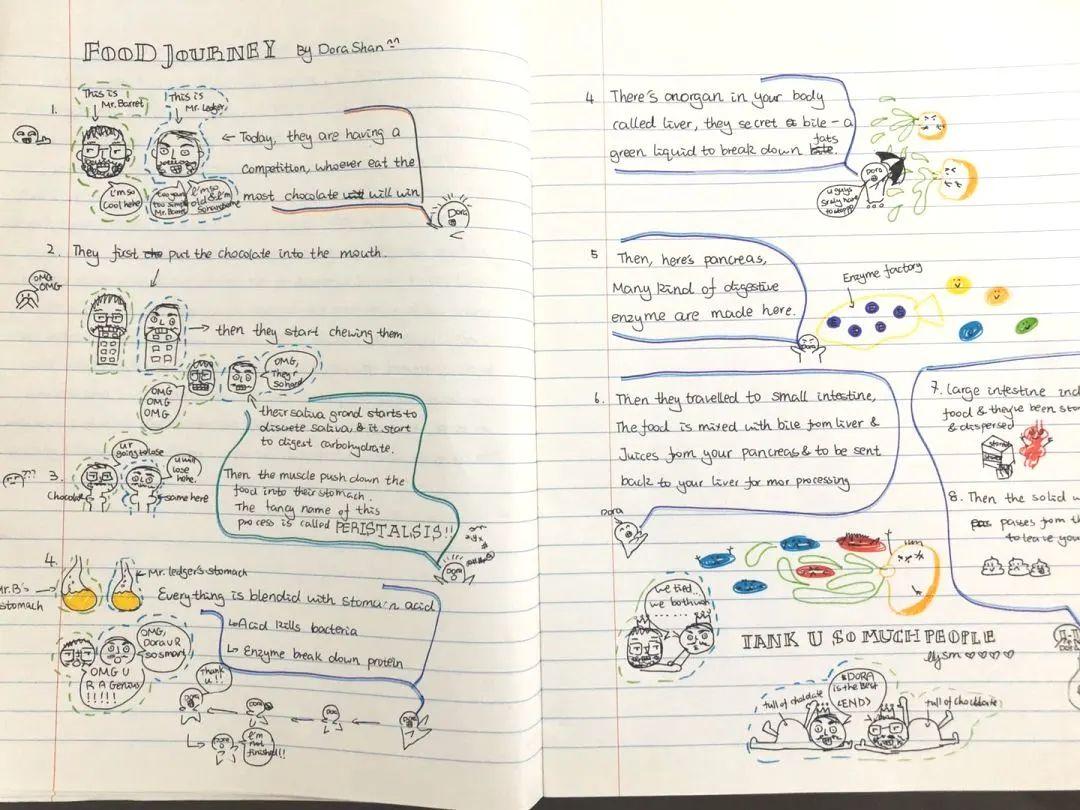 FOOD JOURNEY By Dora Shan
1.
This is
Mr. Barret
This is
Mr. Ledger
← Today, they are having a
competition, whoever eat the
most chocolate will win
I'm so
cool here
too young
too simple
Mr. Barret
I'm so
old & I'm
so handsome
Dora
2. They first put the chocolate into the mouth.
OMG
OMG
→ then they start chewing them
OMG
OMG
OMG
OMG,
They r
so hard
their saliva grand starts to
discrete saliva, & it start
to digest carbohydrate.
Then the muscle push down the
food into their stomach.
The fancy name of this
process is called PERISTALSIS!!
???
3.
u r
going to lose
u will
lose
hehe.
Chocolate
same here
Dora
4.
Mr. B's
stomach
Mr. ledger's stomach
Everything is blendid with stomach acid
↳ Acid kills bacteria
↳ Enzyme break down protein
OMG,
Dora U R
so smart
OMG U
R A Genius
!!!!!
Thank
U!!
Dora
Dora
Dora
Dora
Dora
I'm
not
finished!!
4 There's anorgan in your body
called liver, they secret bile - a
green liquid to break down fats.
Dora
u guys
have
to stoppp
5 Then, here's pancreas,
Many kind of digestive
enzyme are made here.
Enzyme factory
E E E E E
Dora
6. Then they travelled to small intestine,
The food is mixed with bile from liver &
Juices from your pancreas & to be sent
back to your liver for mor processing
Dora
we tied..
we both
7. Large intestine
food & they've been
& dispersed
8. Then the solid
passes from
to leave
TANK U SO MUCH PEOPLE
lysm ♡♡♡♡
full of chocolate
DORA
is the Best
<END>
full of chocolate